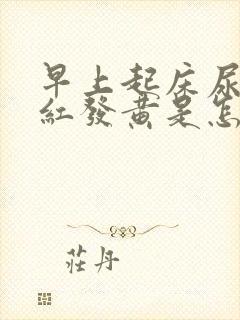 早上起床尿
紅發黃是怎
莊丹